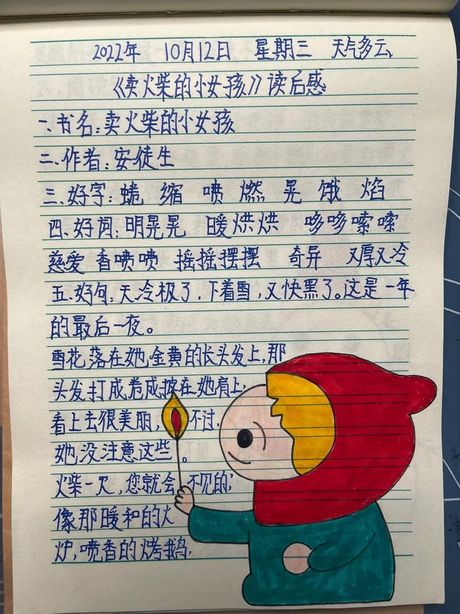 2022年 10月12日 星期三 天气多云
《卖火柴的小女孩》读后感
一、书名：卖火柴的小女孩
二、作者：安徒生
三、好字：蜷 缩 喷 燃 晃 饿 焰
四、好词：明晃晃 暖烘烘 哆哆嗦嗦
慈爱 香喷喷 摇摇摆摆 奇异 又厚又冷
五、好句：天冷极了，下着雪，又快黑了。这是一年
的最后一夜。
雪花落在她金黄的长头发上，那
头发打成卷成披在她肩上，
看上去很美丽，不过，
她没注意这些。
火柴一灭，您就会不见的，
像那暖和的火
炉，喷香的烤鹅，